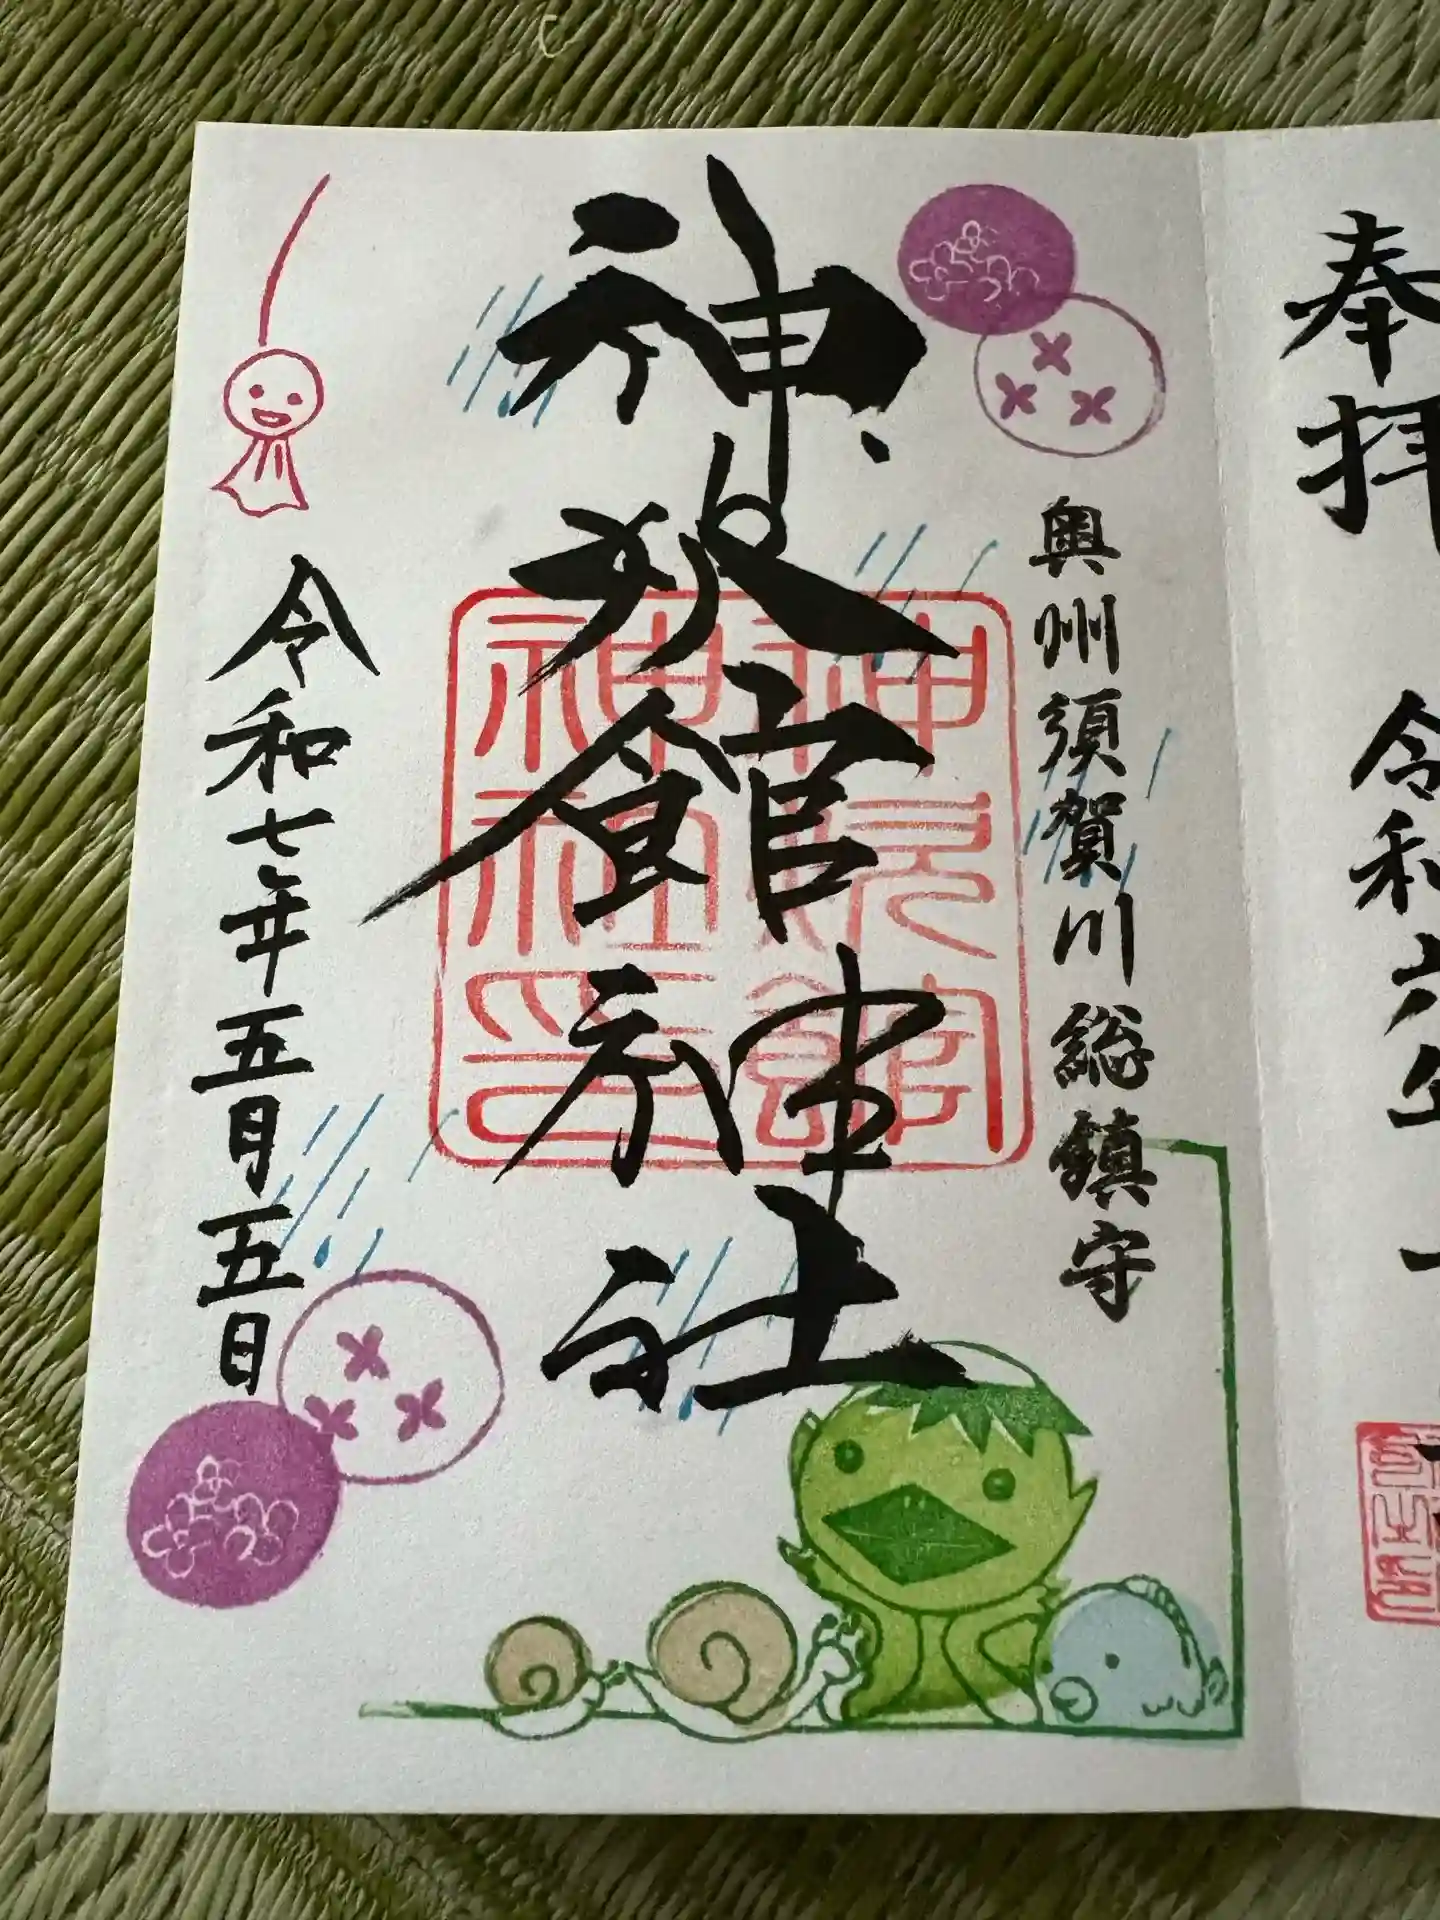 奉拝
令和六年
奥州須賀川総鎮守
神炊館神社
神炊館
神社印
令和七年五月五日